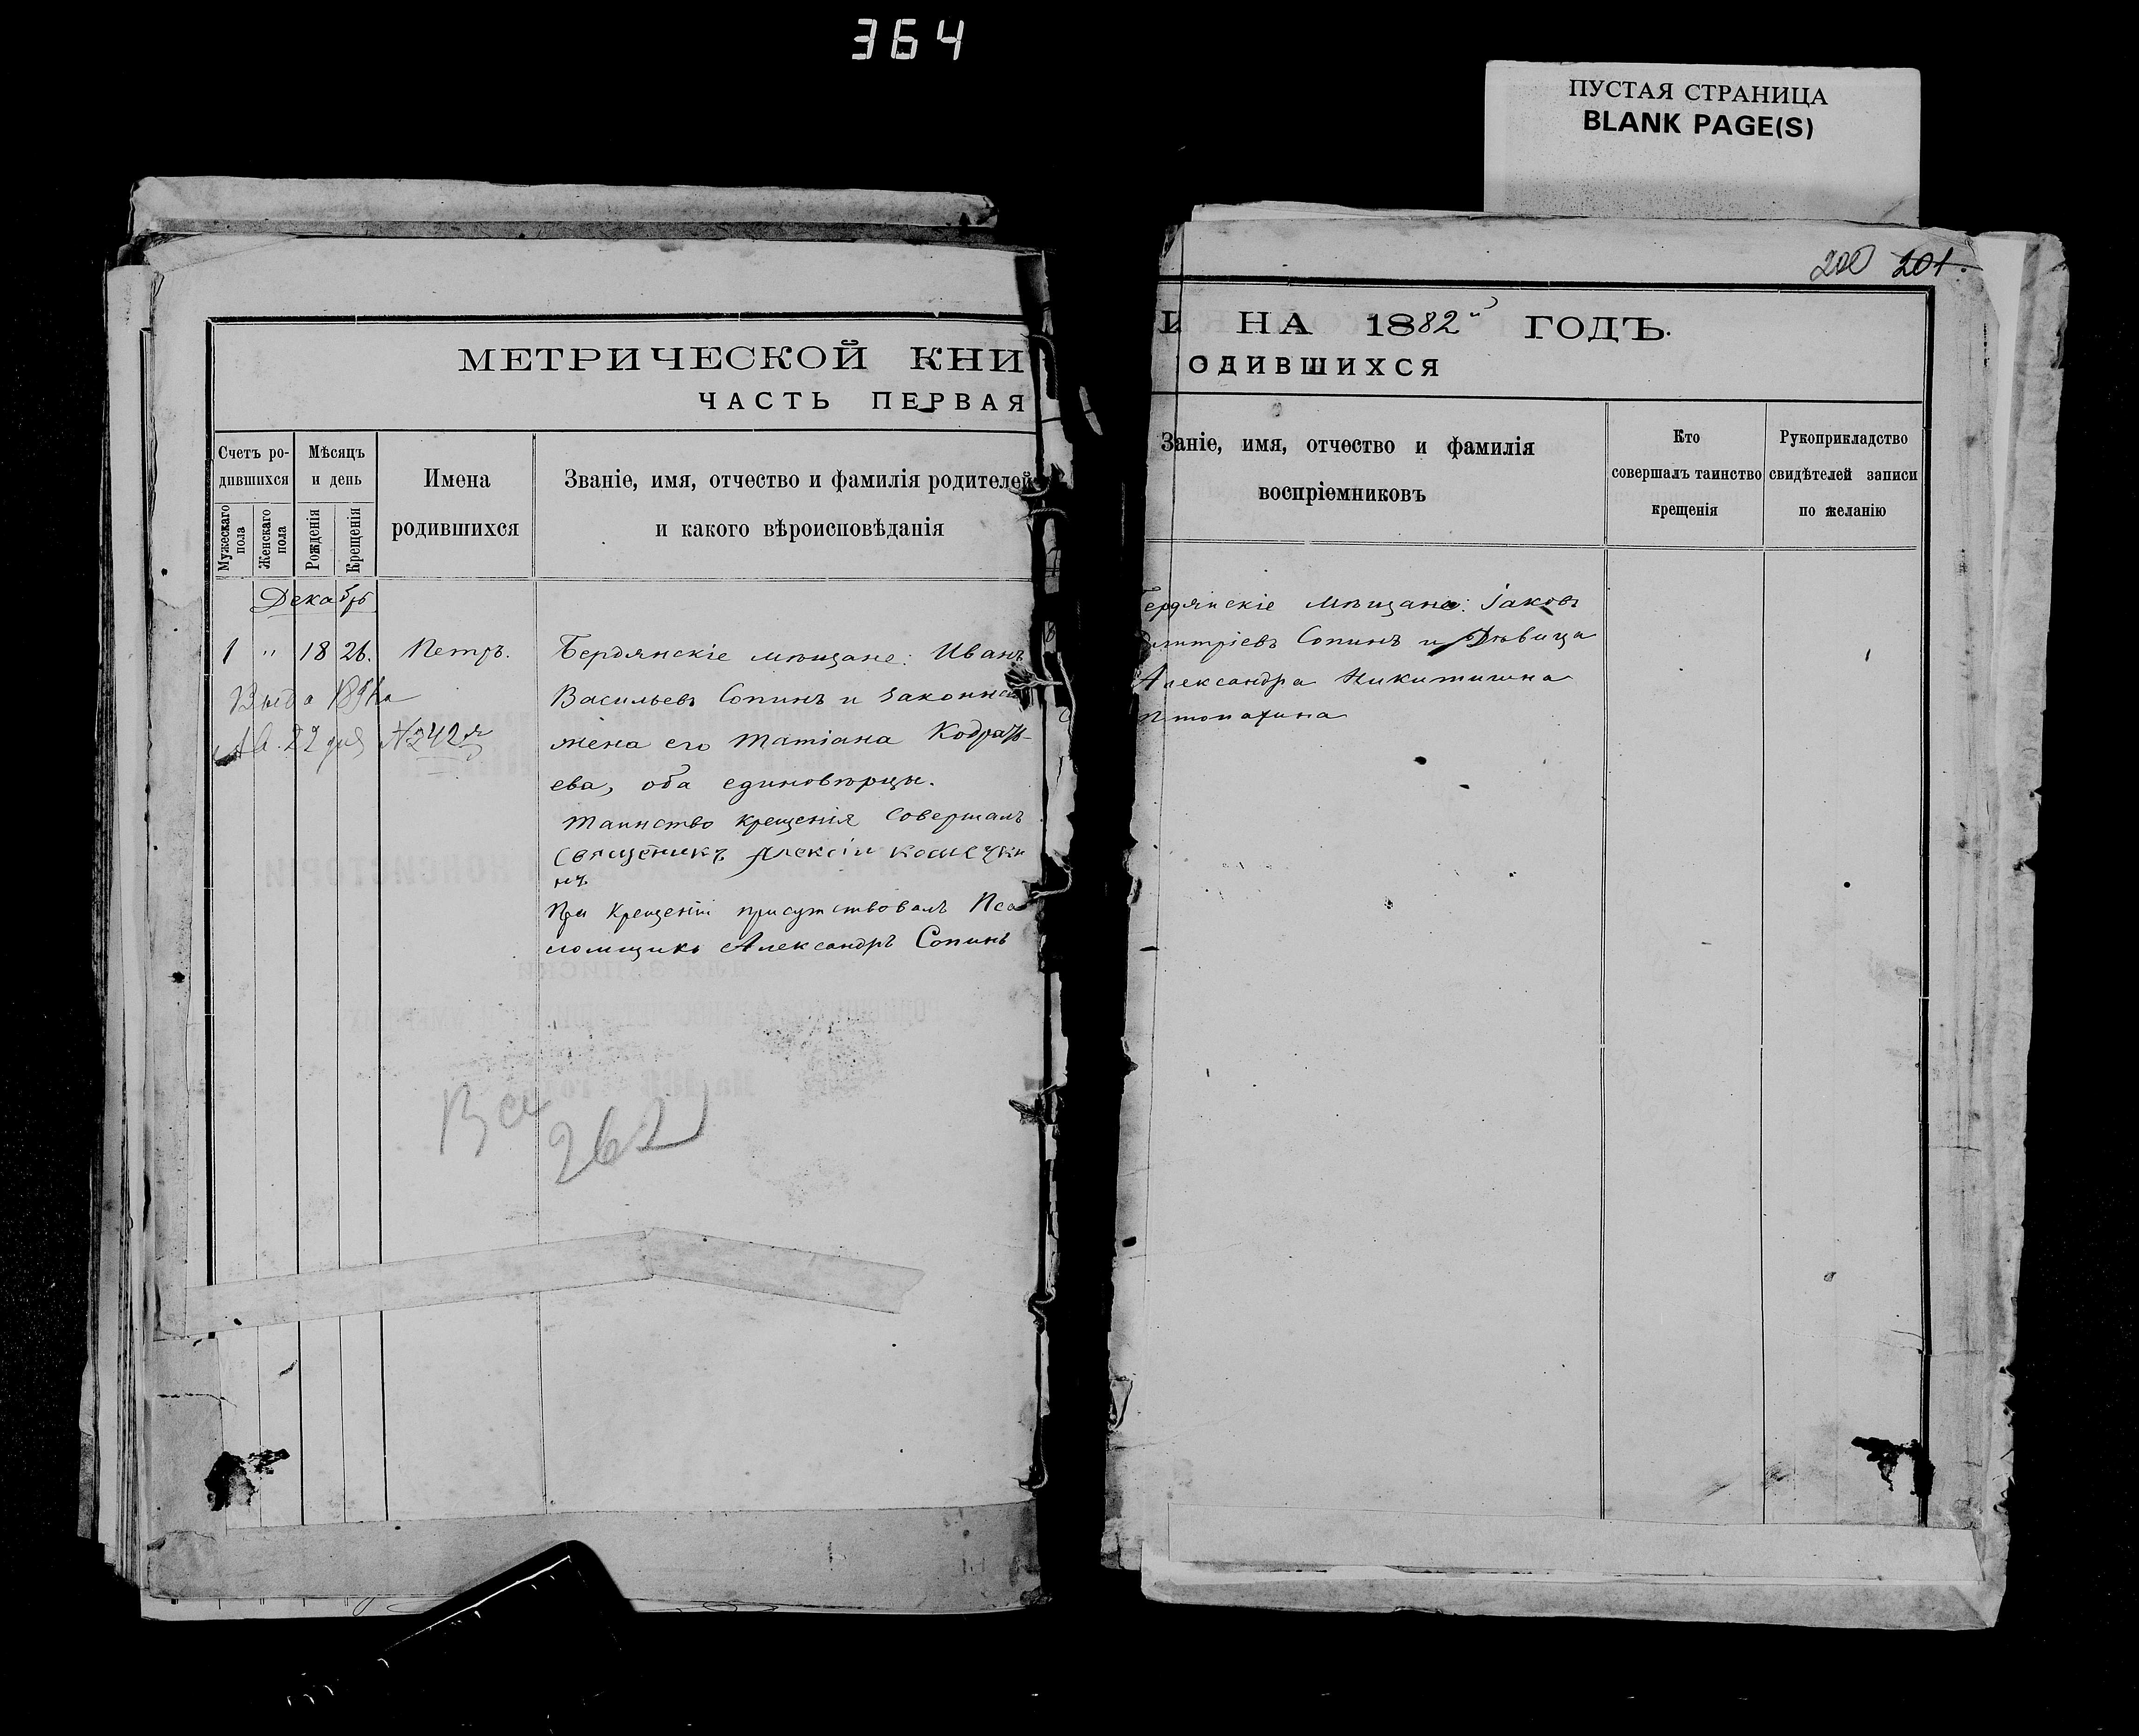 364
ПУСТАЯ СТРАНИЦА
BLANK PAGE(S)
200 201.
МЕТРИЧЕСКОЙ КНИ
ЧАСТЬ ПЕРВАЯ
Счетъ ро-
дившихся
Мужескаго пола
Женскаго пола
Мѣсяцъ
и день
Рожденія
Крещенія
Имена
родившихся
Званіе, имя, отчество и фамилія родителей
и какого вѣроисповѣданія
Декабрь
1 " 18 26. Петръ.
Бердянскіе мѣщане: Иванъ
Васильевъ Сопинъ и законная
жена его Татіана Кодрать-
ева, оба единовѣрцы.
Таинство крещенія совершалъ
Священикъ Алексіи
При крещеніи присутствовалъ Пса
ломщикъ Александръ Сопинъ
22 дня №242
262
И НА 1882й ГОДЪ.
ОДИВШИХСЯ
Заніе, имя, отчество и фамилія
воспріемниковъ
Кто
совершалъ таинство
крещенія
Рукоприкладство
свидѣтелей записи
по желанію
ердянскіе мѣщане: Іаковъ
митріевъ Сопинъ и Дѣвица
Александра Никитишна